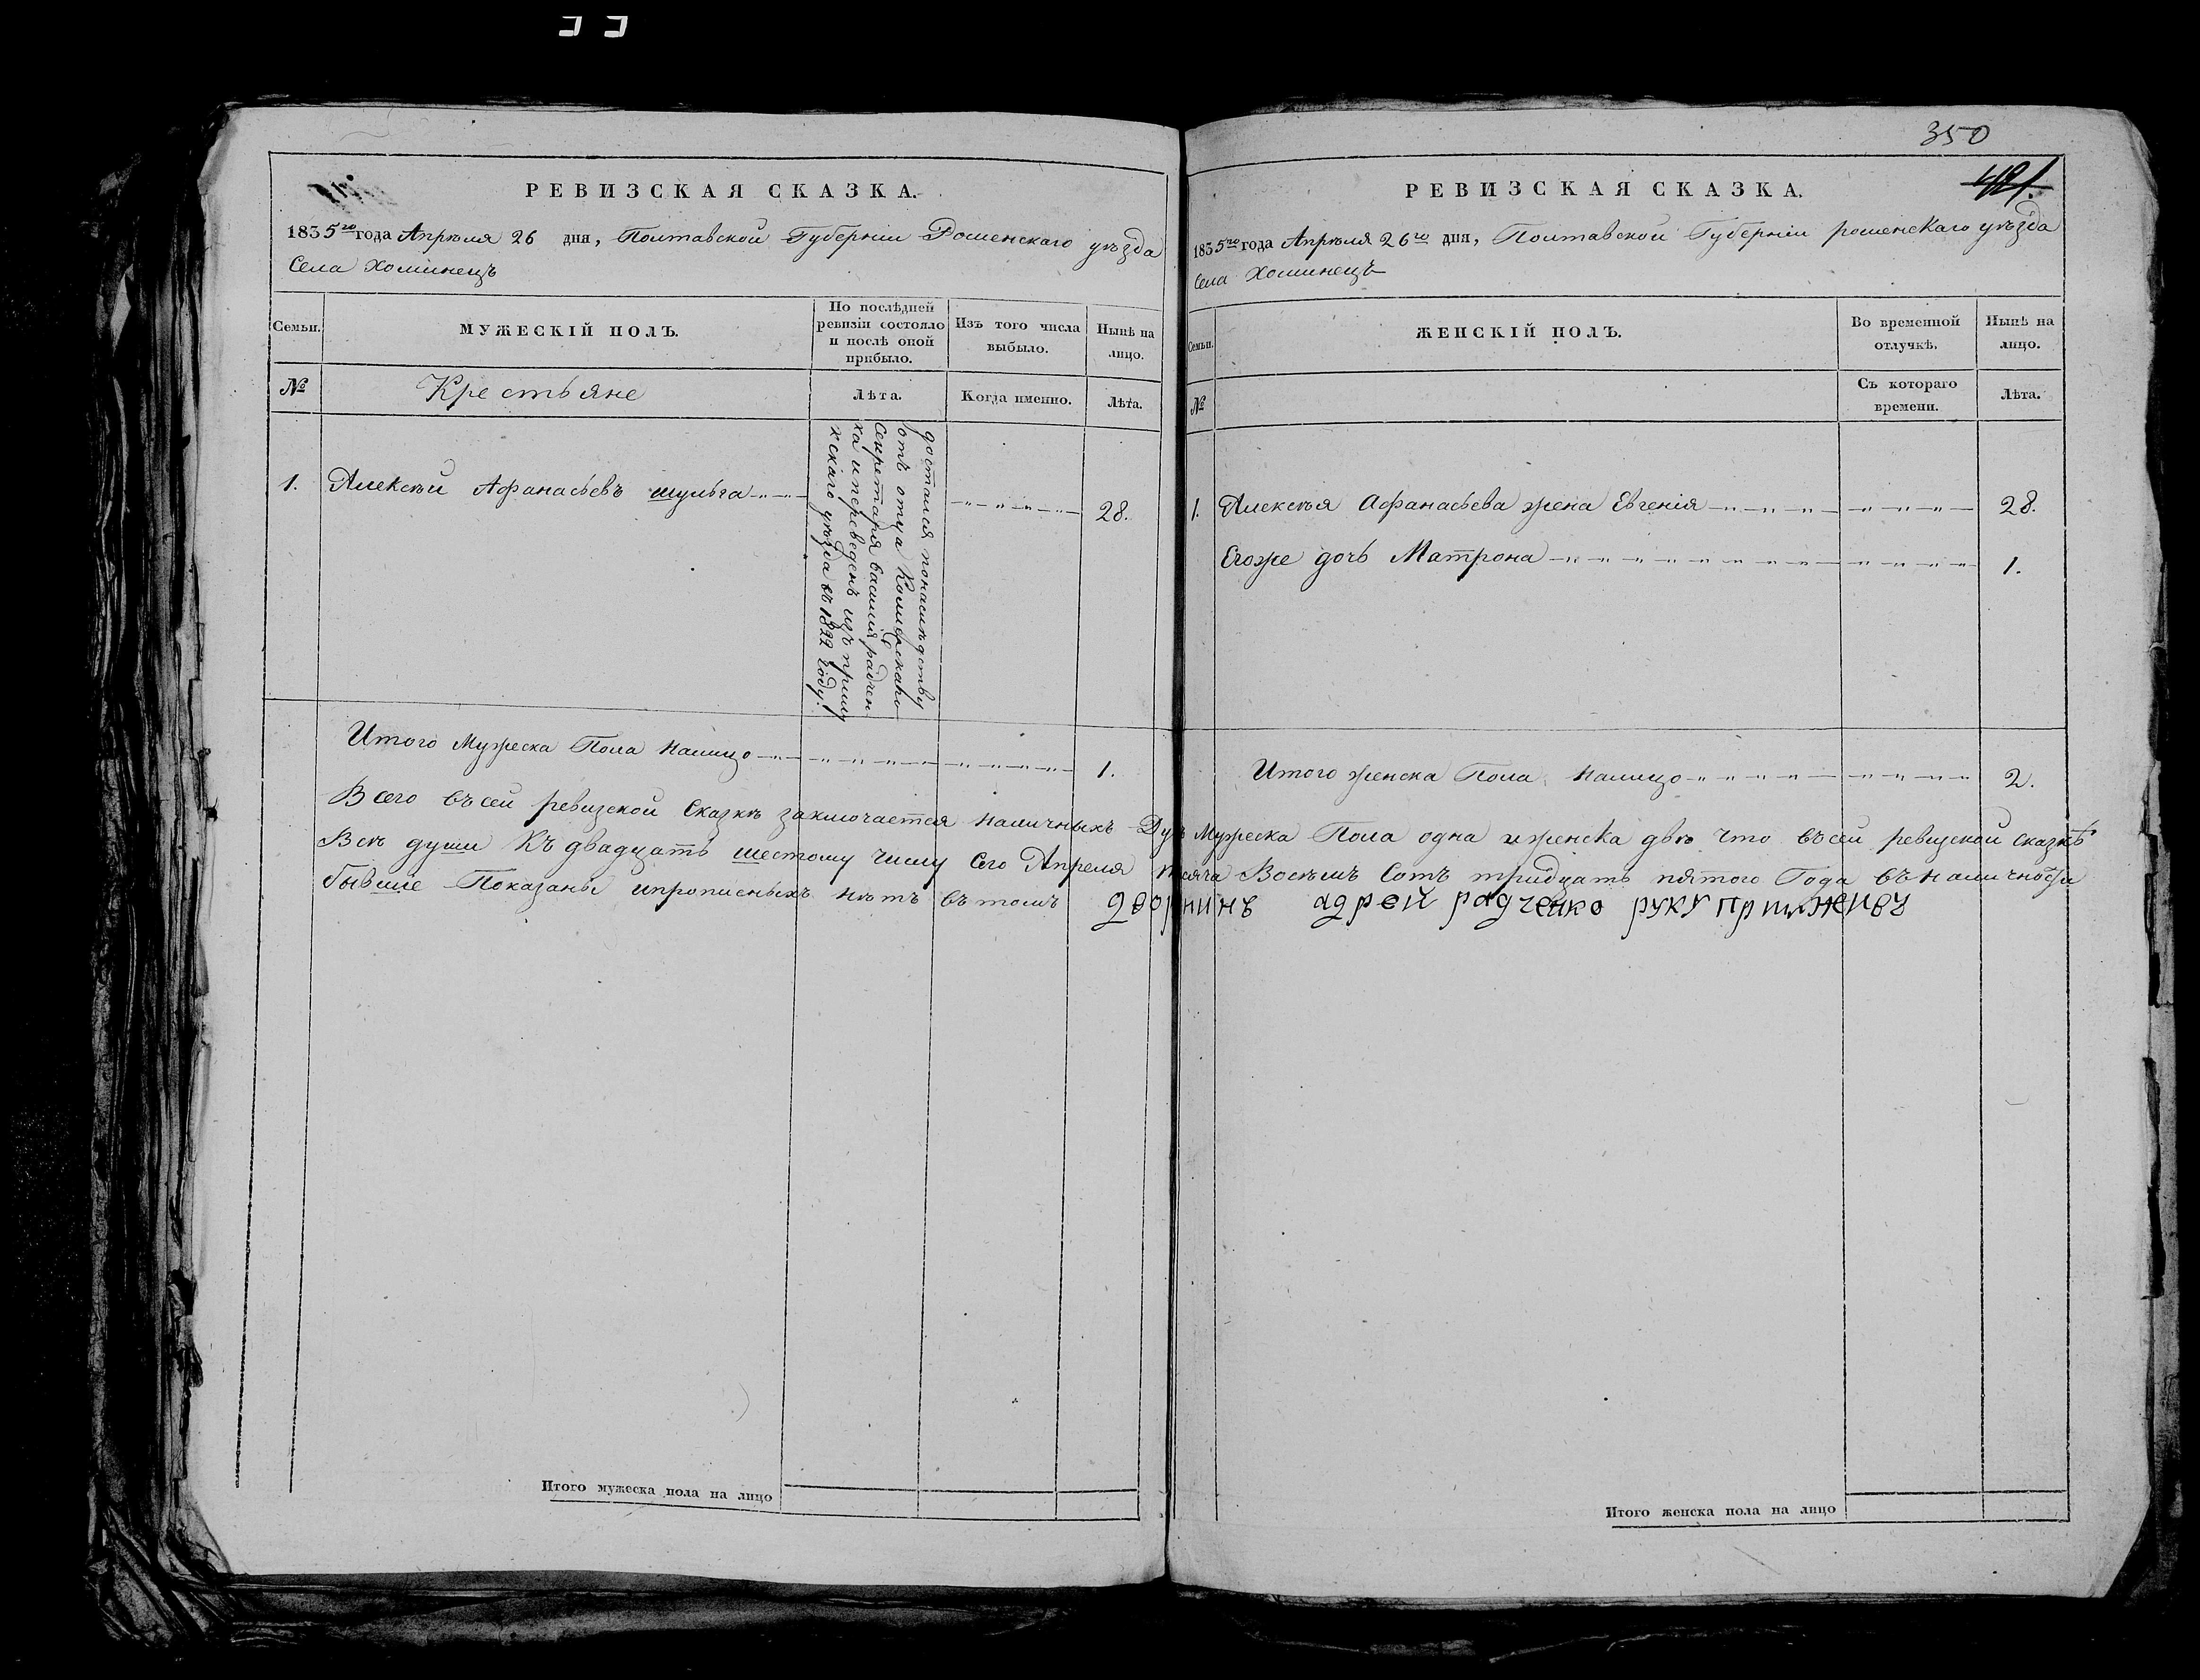 РЕВИЗСКАЯ СКАЗКА.
1835го года Апрѣля 26 дня, Полтавской Губерніи Роменскаго уѣзда
Села Хоминецъ
Семьи.
МУЖЕСКІЙ ПОЛЪ.
По послѣдней
ревизіи состояло
и послѣ оной
прибыло.
Изъ того числа
выбыло.
Нынѣ на
лицо.
№
Крестьяне
Лѣта.
Когда именно.
Лѣта.
1.
Алексѣй Афанасьевъ шульга
достался понаслѣдству
отъ отца
Секретаря василія радчен
ка и переведенъ изъ прилу
кскаго уѣзда въ 1822 Году.
28.
Итого Мужеска Пола налицо
1.
350
421.
РЕВИЗСКАЯ СКАЗКА.
1835го года Апрѣля 26го дня, Полтавской Губерніи роменскаго уѣзда
Села Хоминецъ
Семьи.
ЖЕНСКІЙ ПОЛЪ.
Во временной
отлучкѣ.
Нынѣ на
лицо.
№
Съ котораго
времени.
Лѣта.
1. Алексѣя Афанасьева жена Евгенія
28.
Егоже дочь Матрона
1.
Итого женска Пола налицо
2.
Всего въсей ревизской Сказкѣ заключается наличныхъ Душъ Мужеска Пола одна иженска двѣ что въсей ревизской сказкѣ
Всѣ души Къ двадцать шестому числу Сего Апреля тысяча Восѣмъ Сотъ тридцать пятого Года въ наличности
бывшіе Показаны ипрописныхъ нѣтъ въ томъ
адрей радченко руку
Итого мужеска пола на лицо
Итого женска пола на лицо